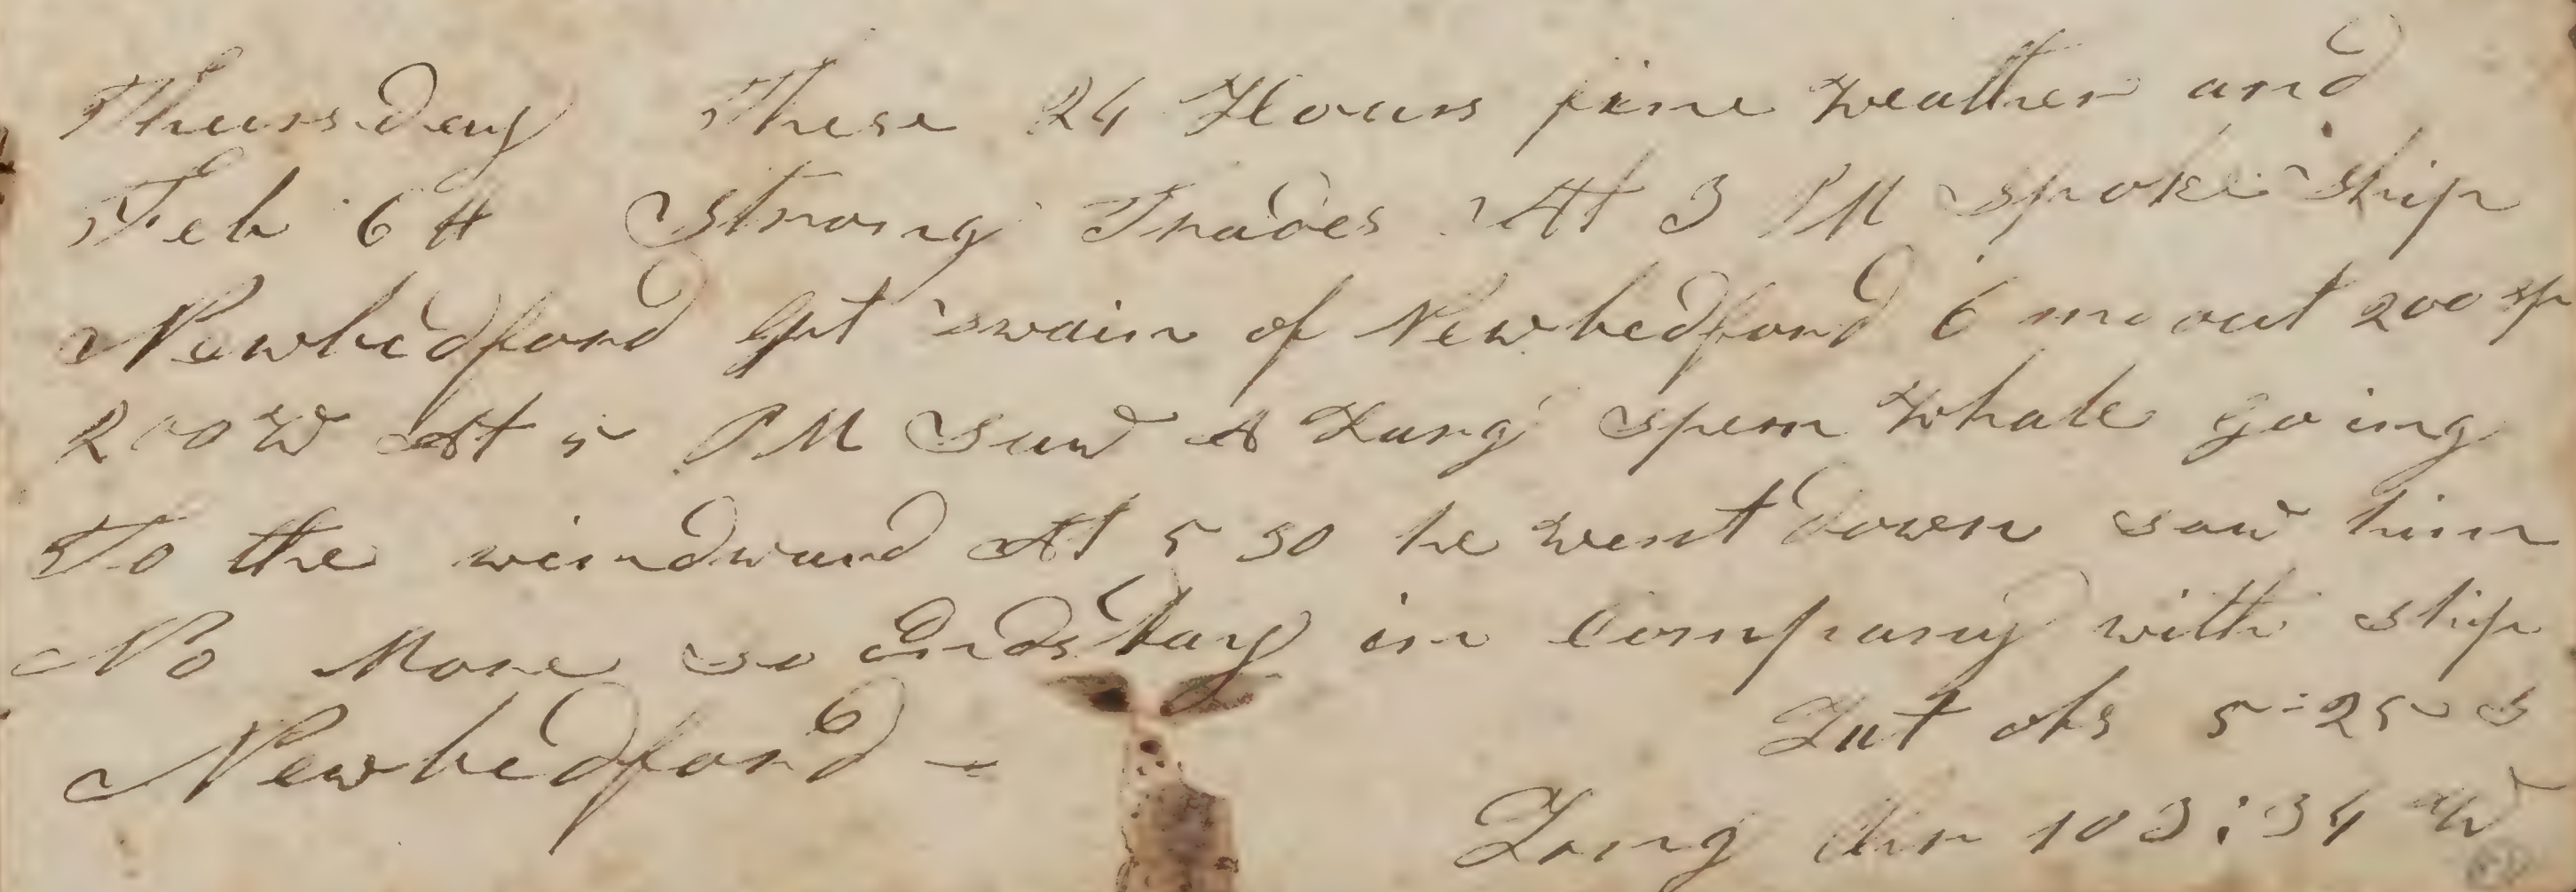 Thursday These 24 Hours fine weather and
Feb 6th Strong Trades At 3 PM spoke Ship
Newbedford Cpt Swain of Newbedford 6 mo out 200 sp
200 W At 5 PM Saw A Larg sperm Whale going
To the windward At 5 30 he went down saw him
No More so Ends day in Company with ship
Newbedford
Lat obs 5:25 S
Long Chr 103:34 W